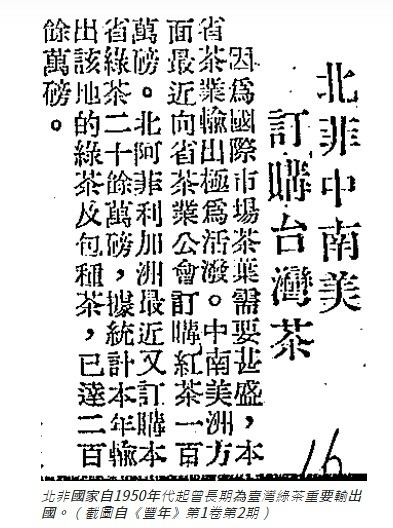 北非中南美
訂購台灣茶
因爲國際市場茶葉需要甚盛，本
省茶業輸出極爲活潑。中南美洲方
面最近向省茶業公會訂購紅茶一百
萬磅。北阿菲利加洲最近又訂購本
省綠茶二十餘萬磅，據統計本年輸
出該地的綠茶及包種茶，已達二百
餘萬磅。
16
北非國家自1950年代起曾長期為臺灣綠茶重要輸出
國。（截圖自《豐年》第1卷第2期）